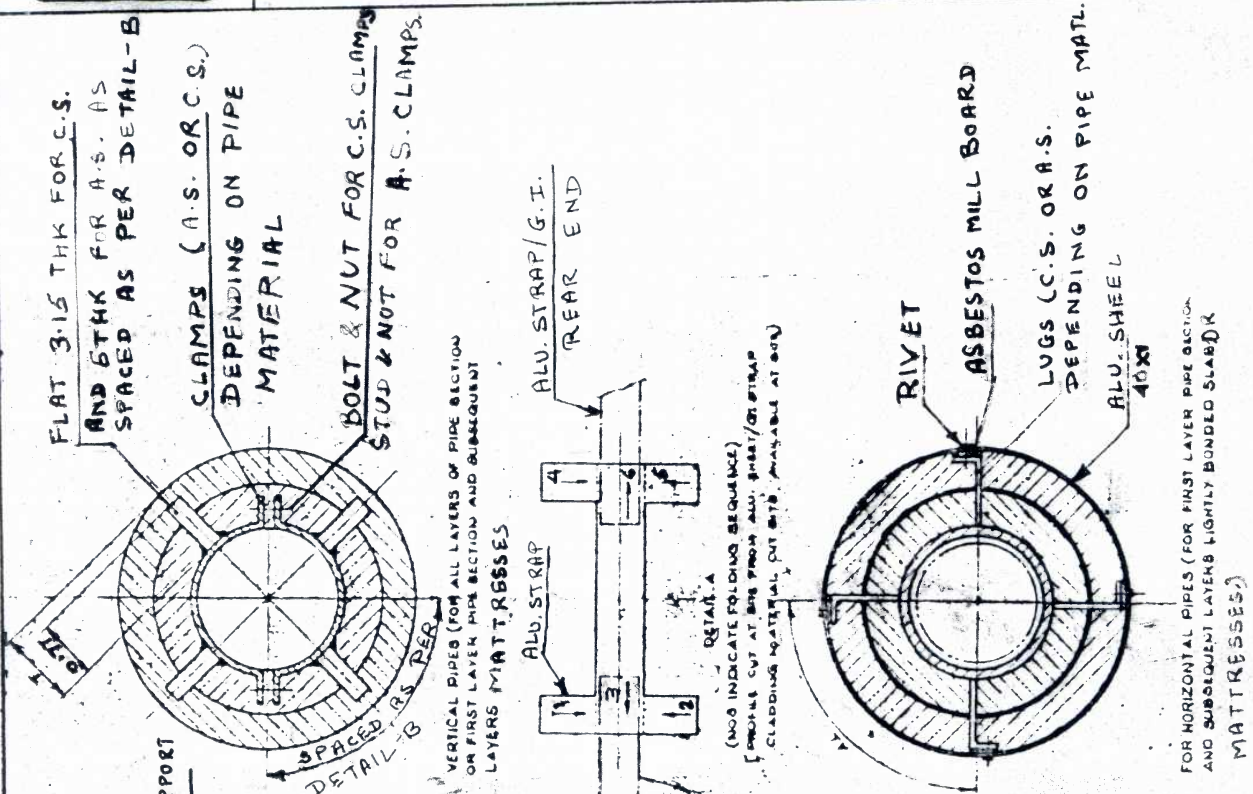 FLAT 3.15 THK FOR C.S.
AND 5THK FOR A.S. AS
SPACED AS PER DETAIL-B
CLAMPS (A.S. OR C.S.)
DEPENDING ON PIPE
MATERIAL
BOLT & NUT FOR C.S. CLAMPS
STUD & NOT FOR A.S. CLAMPS.
PPORT
SPACED AS PER
DETAIL-B
VERTICAL PIPES (FOR ALL LAYERS OF PIPE SECTION
OR FIRST LAYER PIPE SECTION AND SUBSEQUENT
LAYERS MATTRESSES
ALU. STRAP/G.I.
REAR END
ALU. STRAP
1
2
3
4
5
6
DETAIL A
(NOS INDICATE FOLDING SEQUENCE)
[PROFILE CUT AT SITE FROM ALU. SHEET/GI STRAP
CLADDING MATERIAL CUT BITS AVAILABLE AT SITE)
RIVET
ASBESTOS MILL BOARD
LUGS (C.S. OR A.S.
DEPENDING ON PIPE MATL.
ALU. SHEEL
FOR HORIZONTAL PIPES (FOR FIRST LAYER PIPE SECTION
AND SUBSEQUENT LAYERS LIGHTLY BONDED SLAB OR
MATTRESSES)